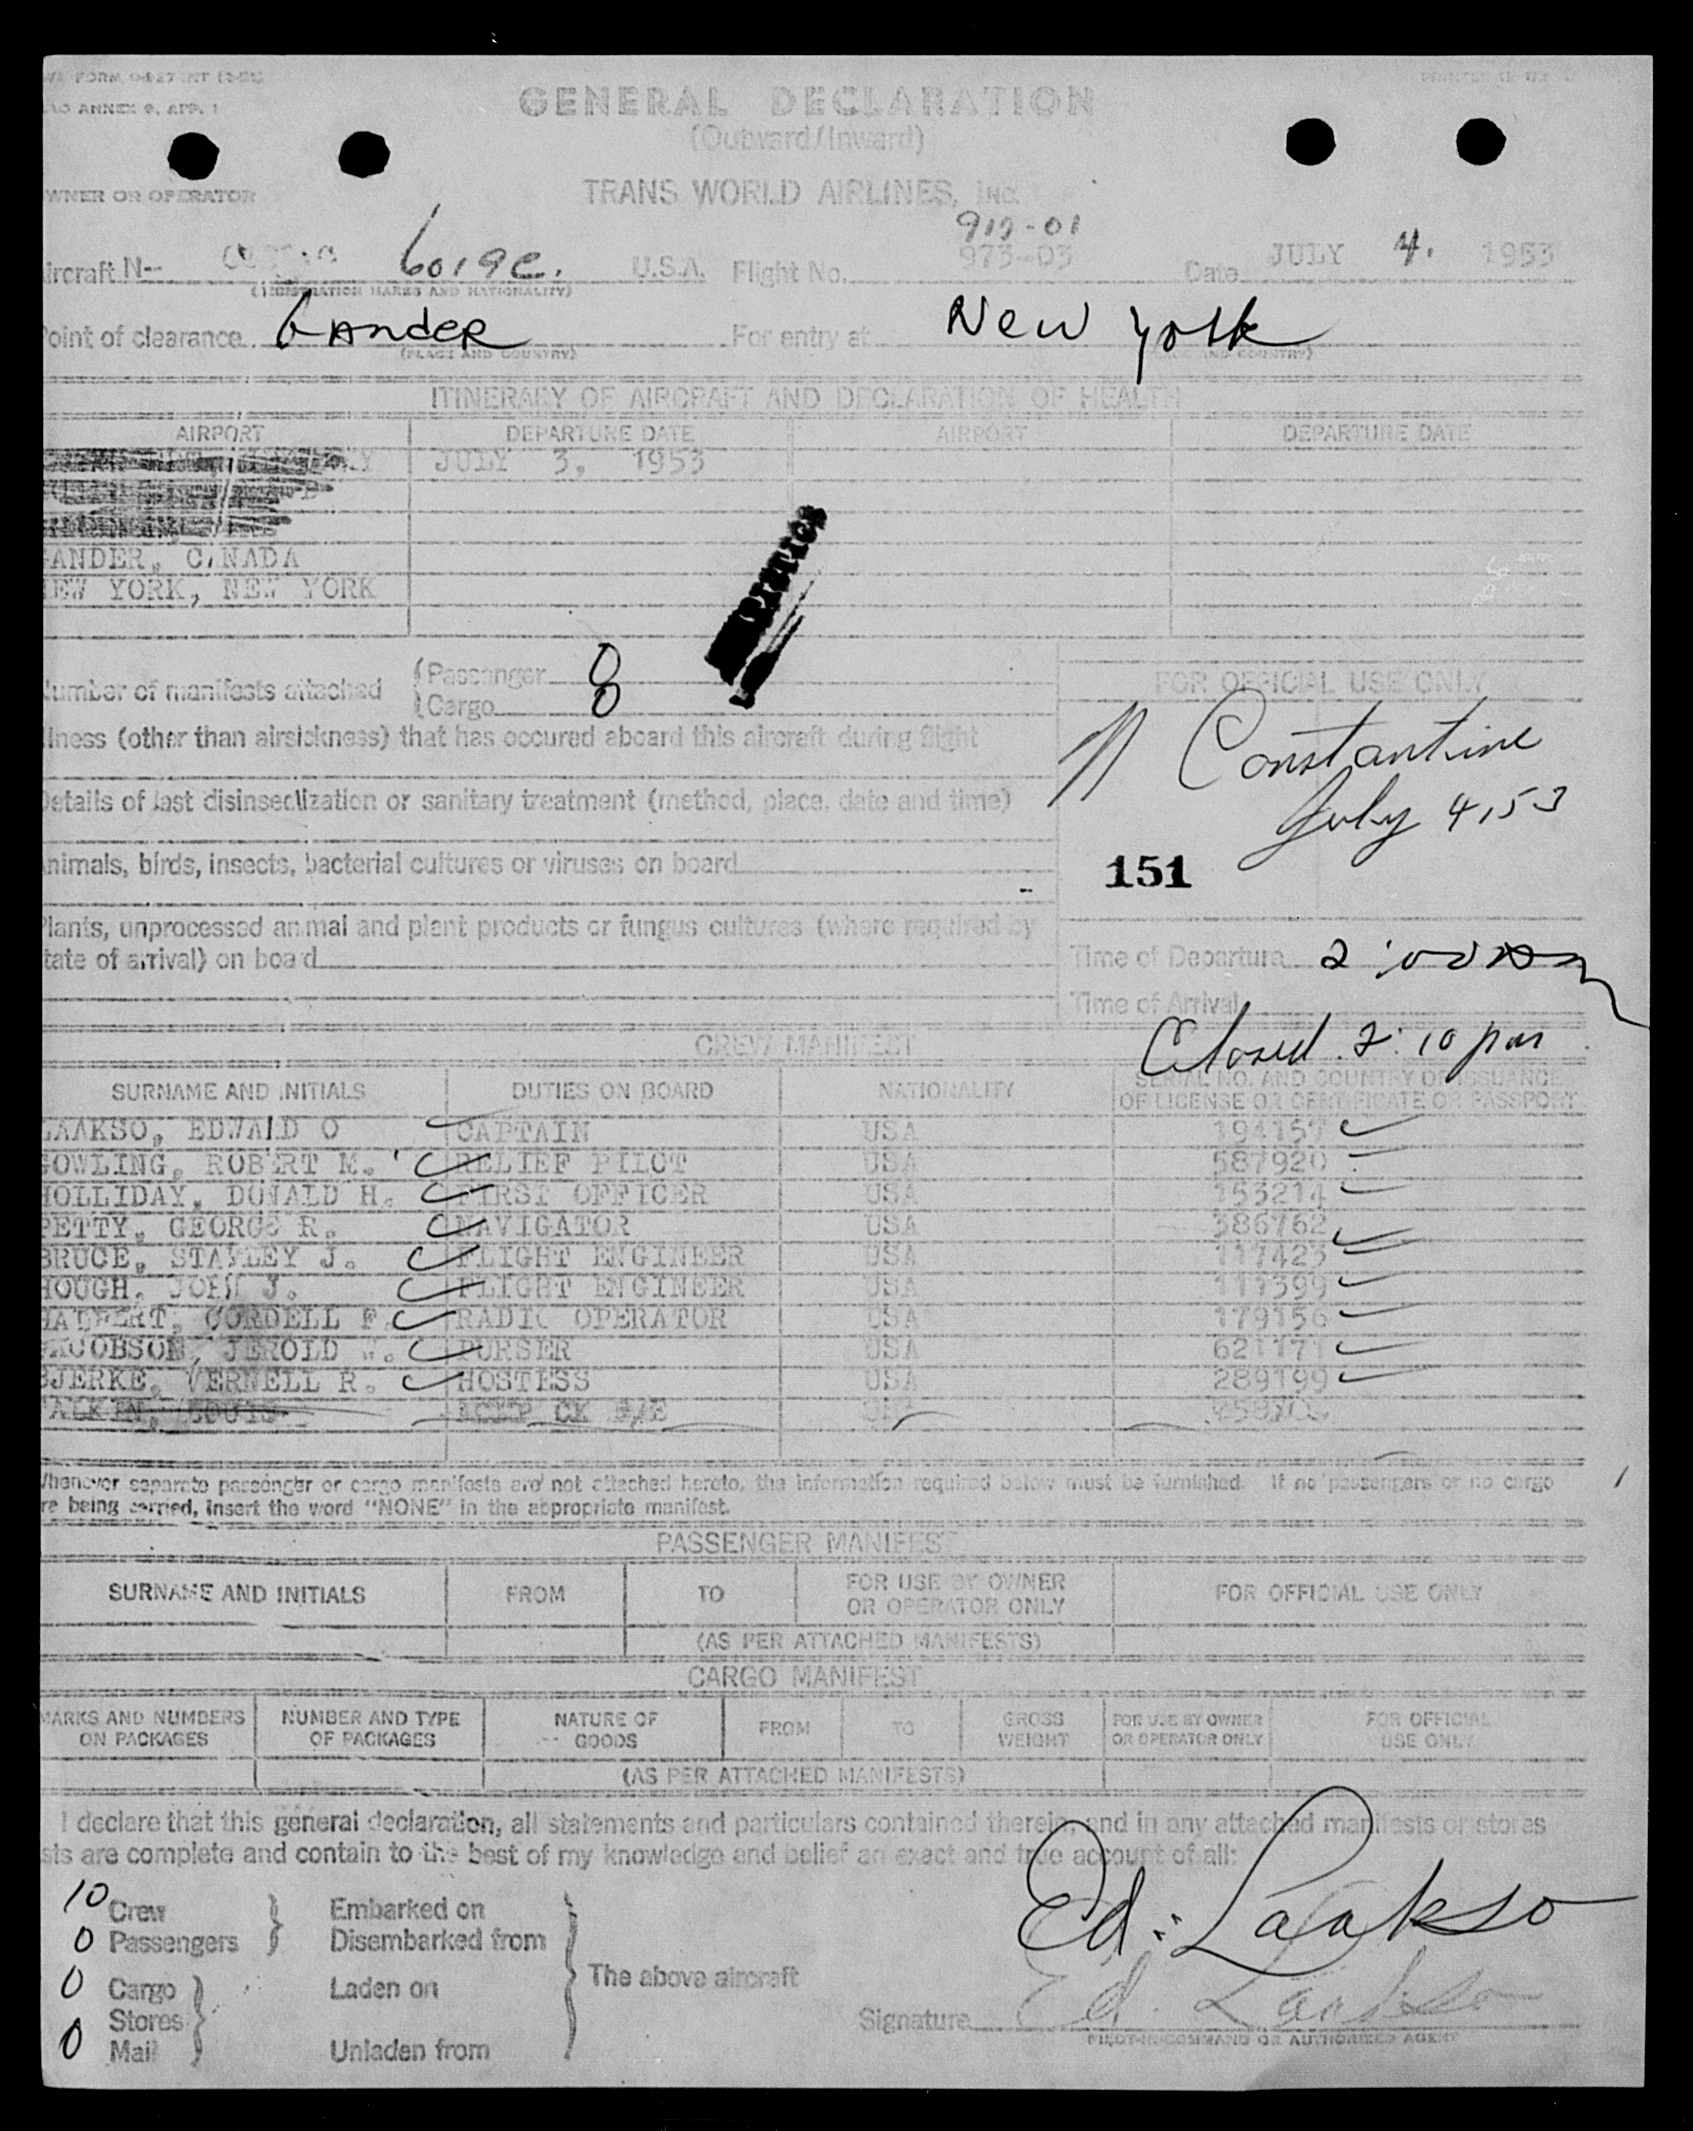 FORM
ANNEX 9, APP. 1
PRINTED IN U.S.
GENERAL DECLARATION
(Outward/Inward)
WNER OR OPERATOR
TRANS WORLD AIRLINES, INC.
ircraft N- 6019C. U.S.A. Flight No. 973-03 Date JULY 4. 1953
(REGISTRATION MARKS AND NATIONALITY)
oint of clearance Gander For entry at New York
(PLACE AND COUNTRY) (PLACE AND COUNTRY)
ITINERARY OF AIRCRAFT AND DECLARATION OF HEALTH
AIRPORT DEPARTURE DATE AIRPORT DEPARTURE DATE
JULY 3, 1953
ANDER, CANADA
EW YORK, NEW YORK
umber of manifests attached (Passenger 0
(Cargo 0
FOR OFFICIAL USE ONLY
llness (other than airsickness) that has occured aboard this aircraft during flight
N Constantine
July 4, 53
etails of last disinsectization or sanitary treatment (method, place, date and time)
nimals, birds, insects, bacterial cultures or viruses on board
151
lants, unprocessed animal and plant products or fungus cultures (where required by
tate of arrival) on board
Time of Departure 2:00
Time of Arrival
Closed 2:10 pm
CREW MANIFEST
SURNAME AND INITIALS DUTIES ON BOARD NATIONALITY SERIAL NO. AND COUNTRY OF ISSUANCE
OF LICENSE OR CERTIFICATE OR PASSPORT
LAAKSO, EDWALD O CAPTAIN USA 194157
GOWLING, ROBERT M. RELIEF PILOT USA 587920
HOLLIDAY, DONALD H. FIRST OFFICER USA 153214
PETTY, GEORGE R. NAVIGATOR USA 386762
BRUCE, STANLEY J. FLIGHT ENGINEER USA 117423
HOUGH, JOHN J. FLIGHT ENGINEER USA 117399
CORDELL F. RADIO OPERATOR USA 179156
JACOBSON, JEROLD W. PURSER USA 621171
BJERKE, VERNELL R. HOSTESS USA 289199
Whenever separate passenger or cargo manifests are not attached hereto, the information required below must be furnished. If no passengers or no cargo
re being carried, insert the word "NONE" in the appropriate manifest.
PASSENGER MANIFEST
SURNAME AND INITIALS FROM TO FOR USE BY OWNER
OR OPERATOR ONLY FOR OFFICIAL USE ONLY
(AS PER ATTACHED MANIFESTS)
CARGO MANIFEST
MARKS AND NUMBERS
ON PACKAGES NUMBER AND TYPE
OF PACKAGES NATURE OF
GOODS FROM TO GROSS
WEIGHT FOR USE BY OWNER
OR OPERATOR ONLY FOR OFFICIAL
USE ONLY
(AS PER ATTACHED MANIFESTS)
I declare that this general declaration, all statements and particulars contained therein, and in any attached manifests or stores
sts are complete and contain to the best of my knowledge and belief an exact and true account of all:
10 Crew } Embarked on
0 Passengers } Disembarked from
0 Cargo } Laden on
Stores
0 Mail } Unladen from
The above aircraft
Ed. Laakso
Signature Ed. Laakso
PILOT-IN-COMMAND OR AUTHORIZED AGENT